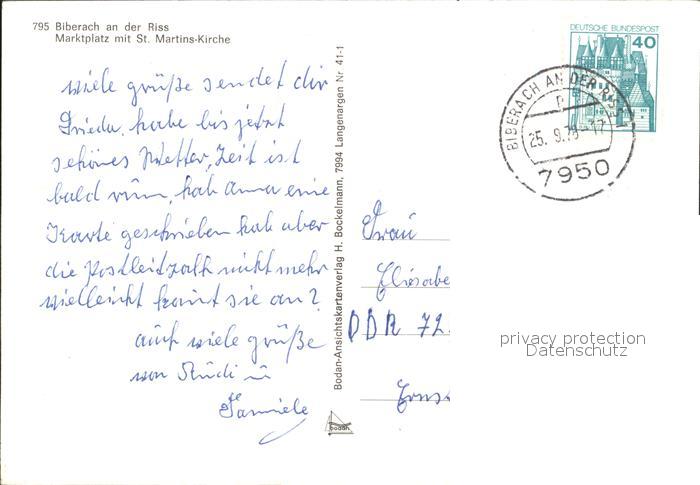 795 Biberach an der Riss
Marktplatz mit St. Martins-Kirche
viele grüße sendet dir
Frieda, habe bis jetzt
schönes Wetter, Zeit ist
bald rum, hab anna eine
Karte geschrieben hab aber
die Postleitzalh nicht mehr
vielleicht komt sie an?
auch viele grüße
von Rudi u
Familie
Bodan-Ansichtskartenverlag H. Bockelmann, 7994 Langenargen Nr 41-1
bodan
DEUTSCHE BUNDESPOST
40
BIBERACH AN DER RISS 1
25. 9.78-17
7950
Frau
Eliesabe
DDR 72
Erns
privacy protection
Datenschutz